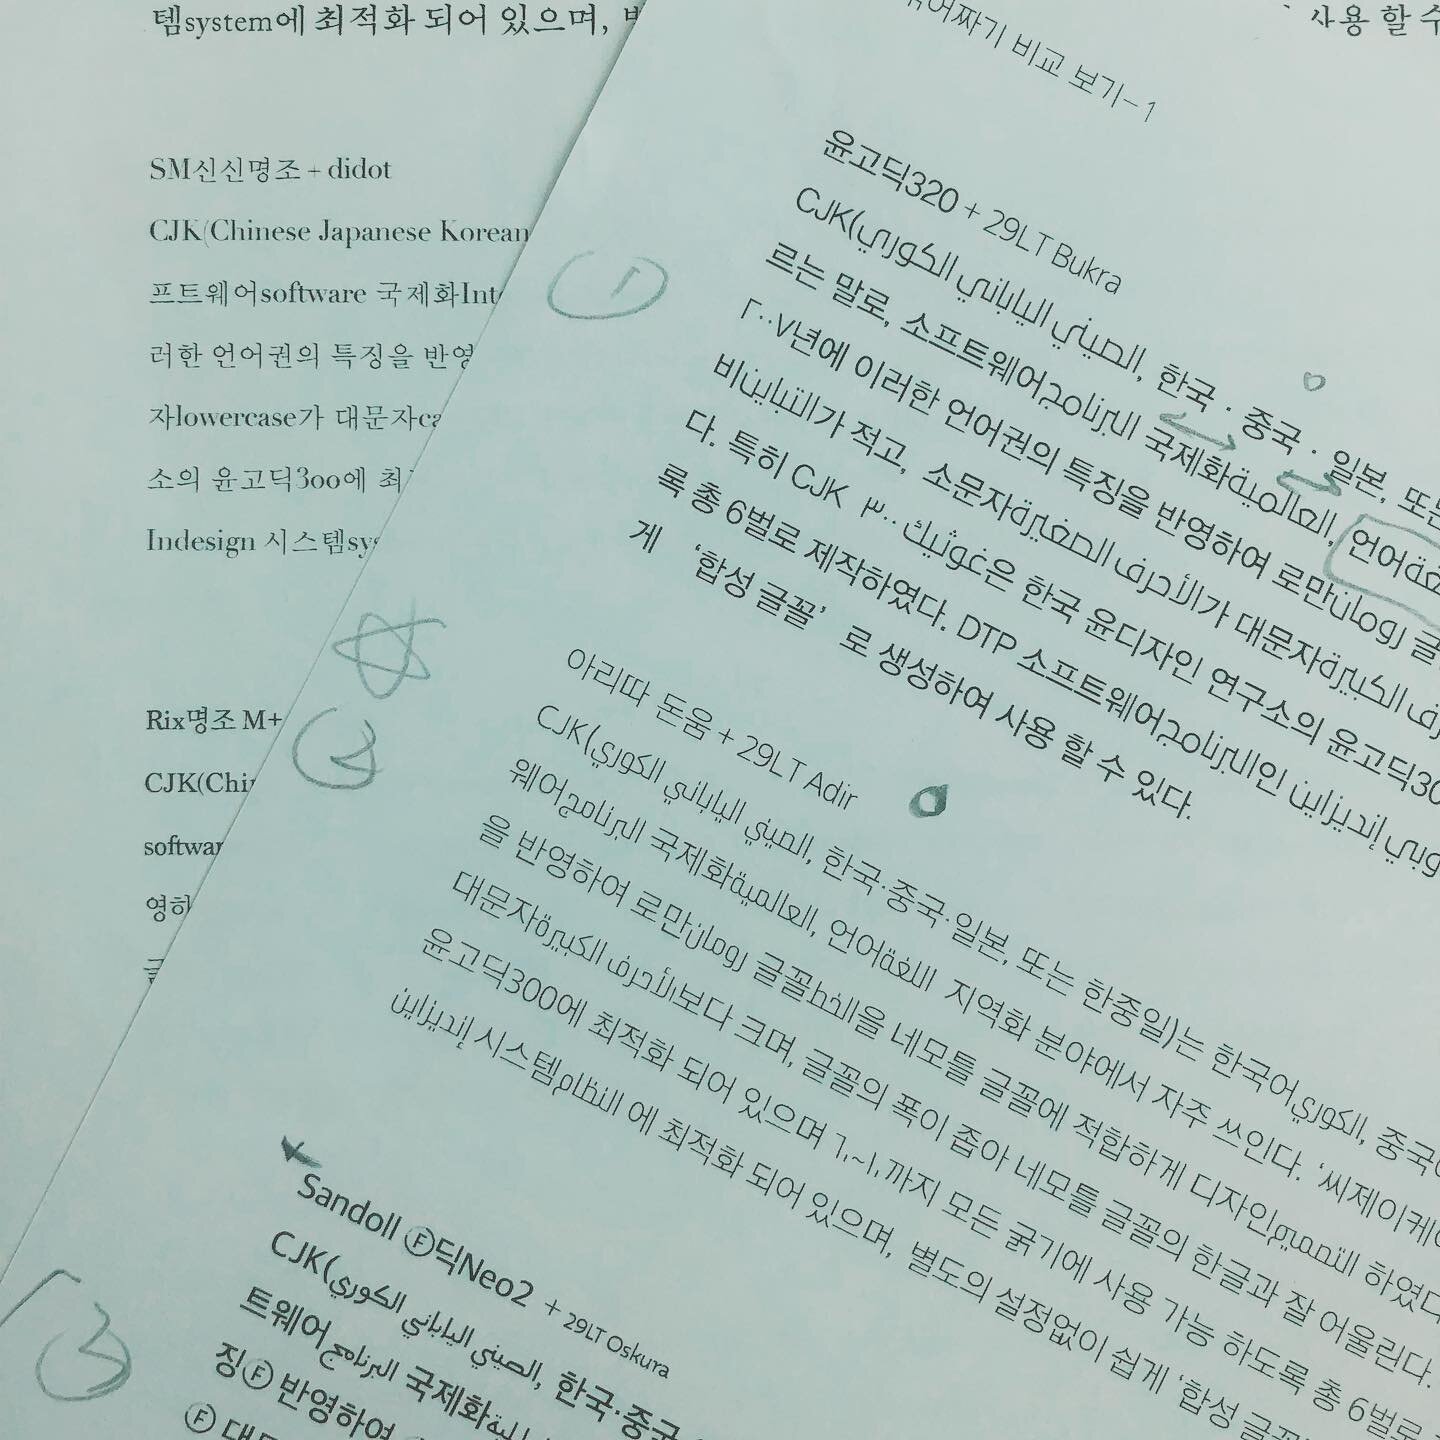 템system에 최적화 되어 있으며,
SM신신명조 + didot
CJK(Chinese Japanese Korean
프트웨어software 국제화Int
러한 언어권의 특징을 반영
자lowercase가 대문자ca
소의 윤고딕300에 최
Indesign 시스템sys
Rix명조 M+
CJK(Chi
softwar
영하
사용 할 수
어짜기 비교 보기-1
윤고딕320 + 29LT Bukra
CJK(الصيني الياباني الكوري, 한국 · 중국 · 일본, 또는
르는 말로, 소프트웨어البرنامج 국제화العالمية, 언어
٢٠٠٧년에 이러한 언어권의 특징을 반영하여 로만رومان 글
비التباين가 적고, 소문자الأحرف الصغيرة가 대문자
다. 특히 CJK ٣٠٠ غوثيك은 한국 윤디자인 연구소의 윤고딕30
록 총 6벌로 제작하였다. DTP 소프트웨어البرنامج인 إنديزاين
게 ‘합성 글꼴’ 로 생성하여 사용 할 수 있다.
1
아리따 돈움 + 29LT Adir
CJK(الصيني الياباني الكوري, 한국·중국·일본, 또는 한중일)는 한국어الكوري, 중국
웨어البرنامج 국제화العالمية, 언어اللغة 지역화 분야에서 자주 쓰인다. ‘씨제이케이
을 반영하여 로만رومان 글꼴الخط을 네모틀 글꼴에 적합하게 디자인التصميم 하였다
대문자الأحرف الكبيرة보다 크며, 글꼴의 폭이 좁아 네모틀 글꼴의 한글과 잘 어울린다.
윤고딕300에 최적화 되어 있으며 ١٠~٦٠까지 모든 굵기에 사용 가능 하도록 총 6벌로
إنديزاين 시스템النظام 에 최적화 되어 있으며, 별도의 설정없이 쉽게 ‘합성 글꼴
2
Sandoll Ⓕ딕Neo2 + 29LT Oskura
CJK(الصيني الياباني الكوري, 한국·중국
트웨어البرنامج 국제화
징Ⓕ 반영하여
Ⓕ 대문
3